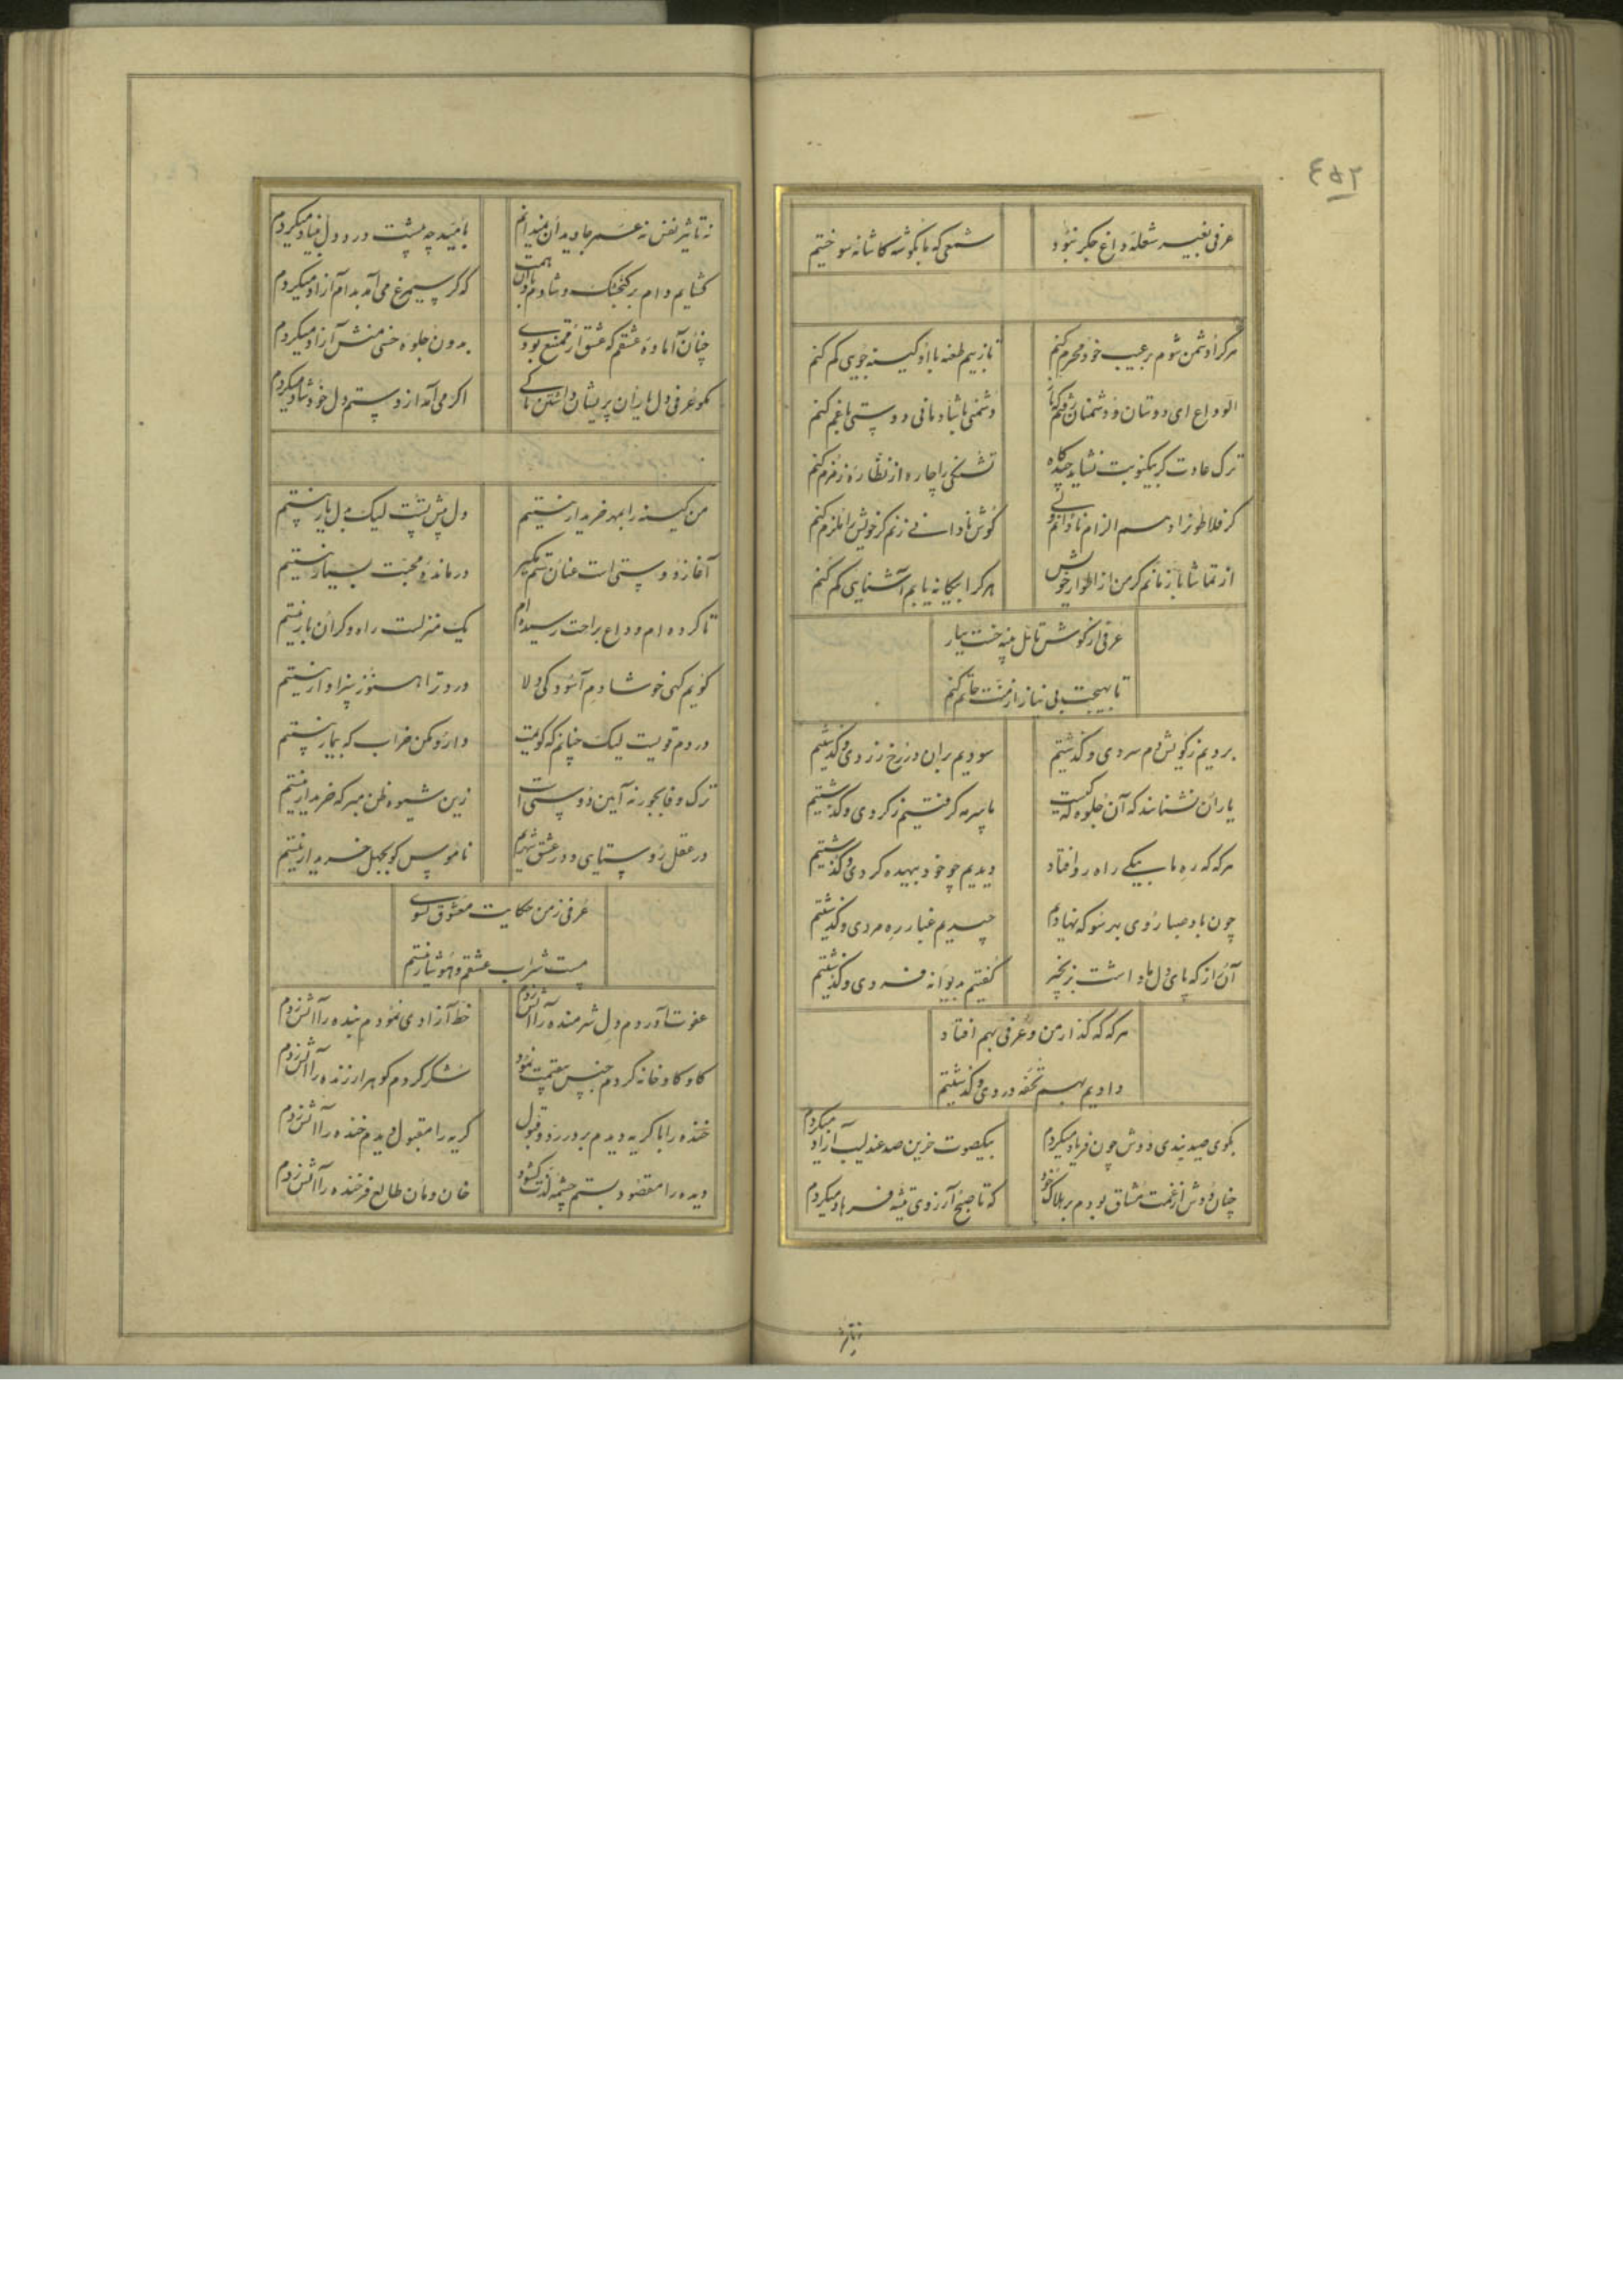 ٤٥٢
عرفی بغیر شعله داغ جگر نبود
شمعی که ما بگوشه کاشانه سوختیم
هر کرا دشمن شوم بر عیب خود محرم کنم
تا ز بیم طعنه با او کینه جویی کم کنم
الوداع ای دوستان و دشمنان
دشمنی با شادمانی دوستی با غم کنم
ترک عادت گر نکوییست نشاید
تشنگی را چاره از نظاره زمزم کنم
گر فلاطون زادهم الزام نادانی
گوش نادانی زنم گر خویش را ملزم کنم
از تماشا باز مانم گر من از اطوار خویش
هر کرا بیگانه یابم آشنایی کم کنم
عرفی از گوش تأمل پنبه خست بیار
تا بهیچت بی نیاز از منت حاتم کنم
بردیم ز کویش دم سردی و گذشتیم
سودیم بران در رخ زردی و گذشتیم
یاران نشناسند که آن جلوه گه کیست
ما سرمه گرفتیم ز گردی و گذشتیم
هر گه که ره ما بیکی راه رو افتاد
دیدیم چو خود بیهده گردی و گذشتیم
چون باد صبا روی بهر سو که نهادیم
چیدیم غبار ره مردی و گذشتیم
آن را که پای دل ما داشت بزنجیر
گفتیم بدیوانه فسردی و گذشتیم
هر گه که گذار من و عرفی بهم افتاد
دادیم بهم تحفه دردی و گذشتیم
بکوی صید بندی دوش چون فریاد میکردم
بیکصوت حزین صد عندلیب آزاد میکردم
چنان دوش از غمت مشتاق بودم بر هلاک خود
که تا صبح آرزوی تیشه فرهاد میکردم
نه تاثیر نفس نه عمر جاویدان نمیدانم
بامید چه پشت درد دل بنیاد میکردم
گشایم دام بر گنجشک و شادم یاد آن همت
که گر سیمرغ می آمد بدام آزاد میکردم
چنان آماده عشقم که عشق ار ممتنع بودی
بدون جلوه حسنی منش آزاد میکردم
مگو عرفی دل یاران پریشان داشتن تا کی
اگر می آمد از دستم دل خود شاد میکردم
من کینه را بمهر خریدار نیستم
دل لیک دل یار نیستم
آغاز دوستی است عنان ستم مگیر
درمانده محبت بسیار نیستم
تا کرده ام وداع براحت رسیده ام
یک منزلست راه و گران بار نیستم
گویم گهی خوشا دم آسودگی دلا
درد ترا هنوز سزاوار نیستم
دردم قویست لیک چنانم که گویمت
دارو مکن خراب که بیمار نیستم
ترک وفا بجور نه آیین دوستی است
زین شیوه ظن مبر که خریدار نیستم
در عقل روستایی و در عشق شهریم
ناموس کو بجهل خریدار نیستم
عرفی ز من حکایت معشوق نشنوی
مست شراب عشقم و هشیار نیستم
عفوت آوردم دل شرمنده را آتش زدم
خط آزادی نمودم بنده را آتش زدم
کاو کاو خانه کردم جنس نمود
شکر کردم گوهر ارزنده را آتش زدم
خنده را با گریه دیدم بر در رد و قبول
گریه را مقبول دیدم خنده را آتش زدم
دیده را مقصود بستم چشمه لذت گشود
خان و مان طالع فرخنده را آتش زدم
نه تاثیر